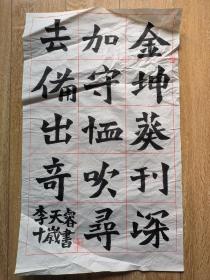 金坤葵刊深
加守恤吹尋
去備出奇
李天睿
十歲書